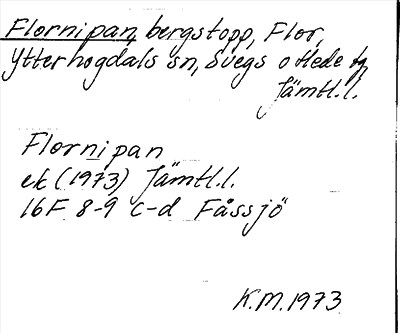 Flornipan, bergstopp, Flor,
Ytterhogdals sn, Svegs o Hede tg
Jämtl.l.
Flornipan
ek (1973) Jämtl.l.
16F 8-9 c-d Fåssjö
K.M.1973